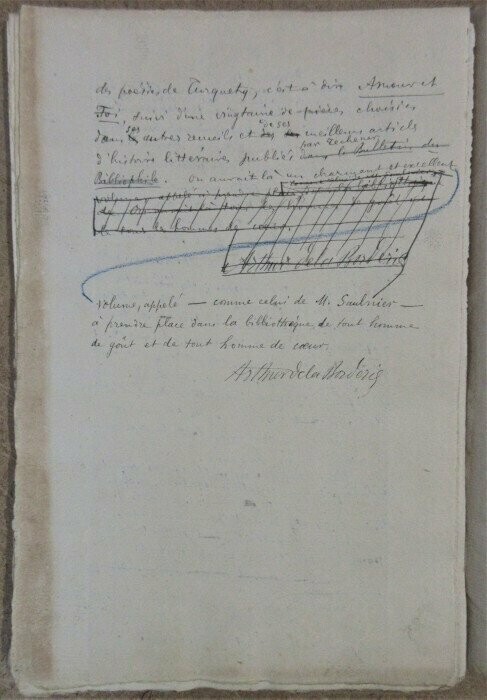 des poésies de Turquety, c'est à dire Amour et
Foi, suivi d'une vingtaine de pièces, choisies
dans ses autres recueils et de ses meilleurs articles
d'histoire littéraire publiés par Techener dans le Bulletin du
Bibliophile. On aurait là un charmant et excellent
volume appelé à prendre place
de tous les hommes de cœur.
Arthur de la Borderie
volume, appelé — comme celui de M. Saulnier —
à prendre place dans la bibliothèque de tout homme
de goût et de tout homme de cœur.
Arthur de la Borderie